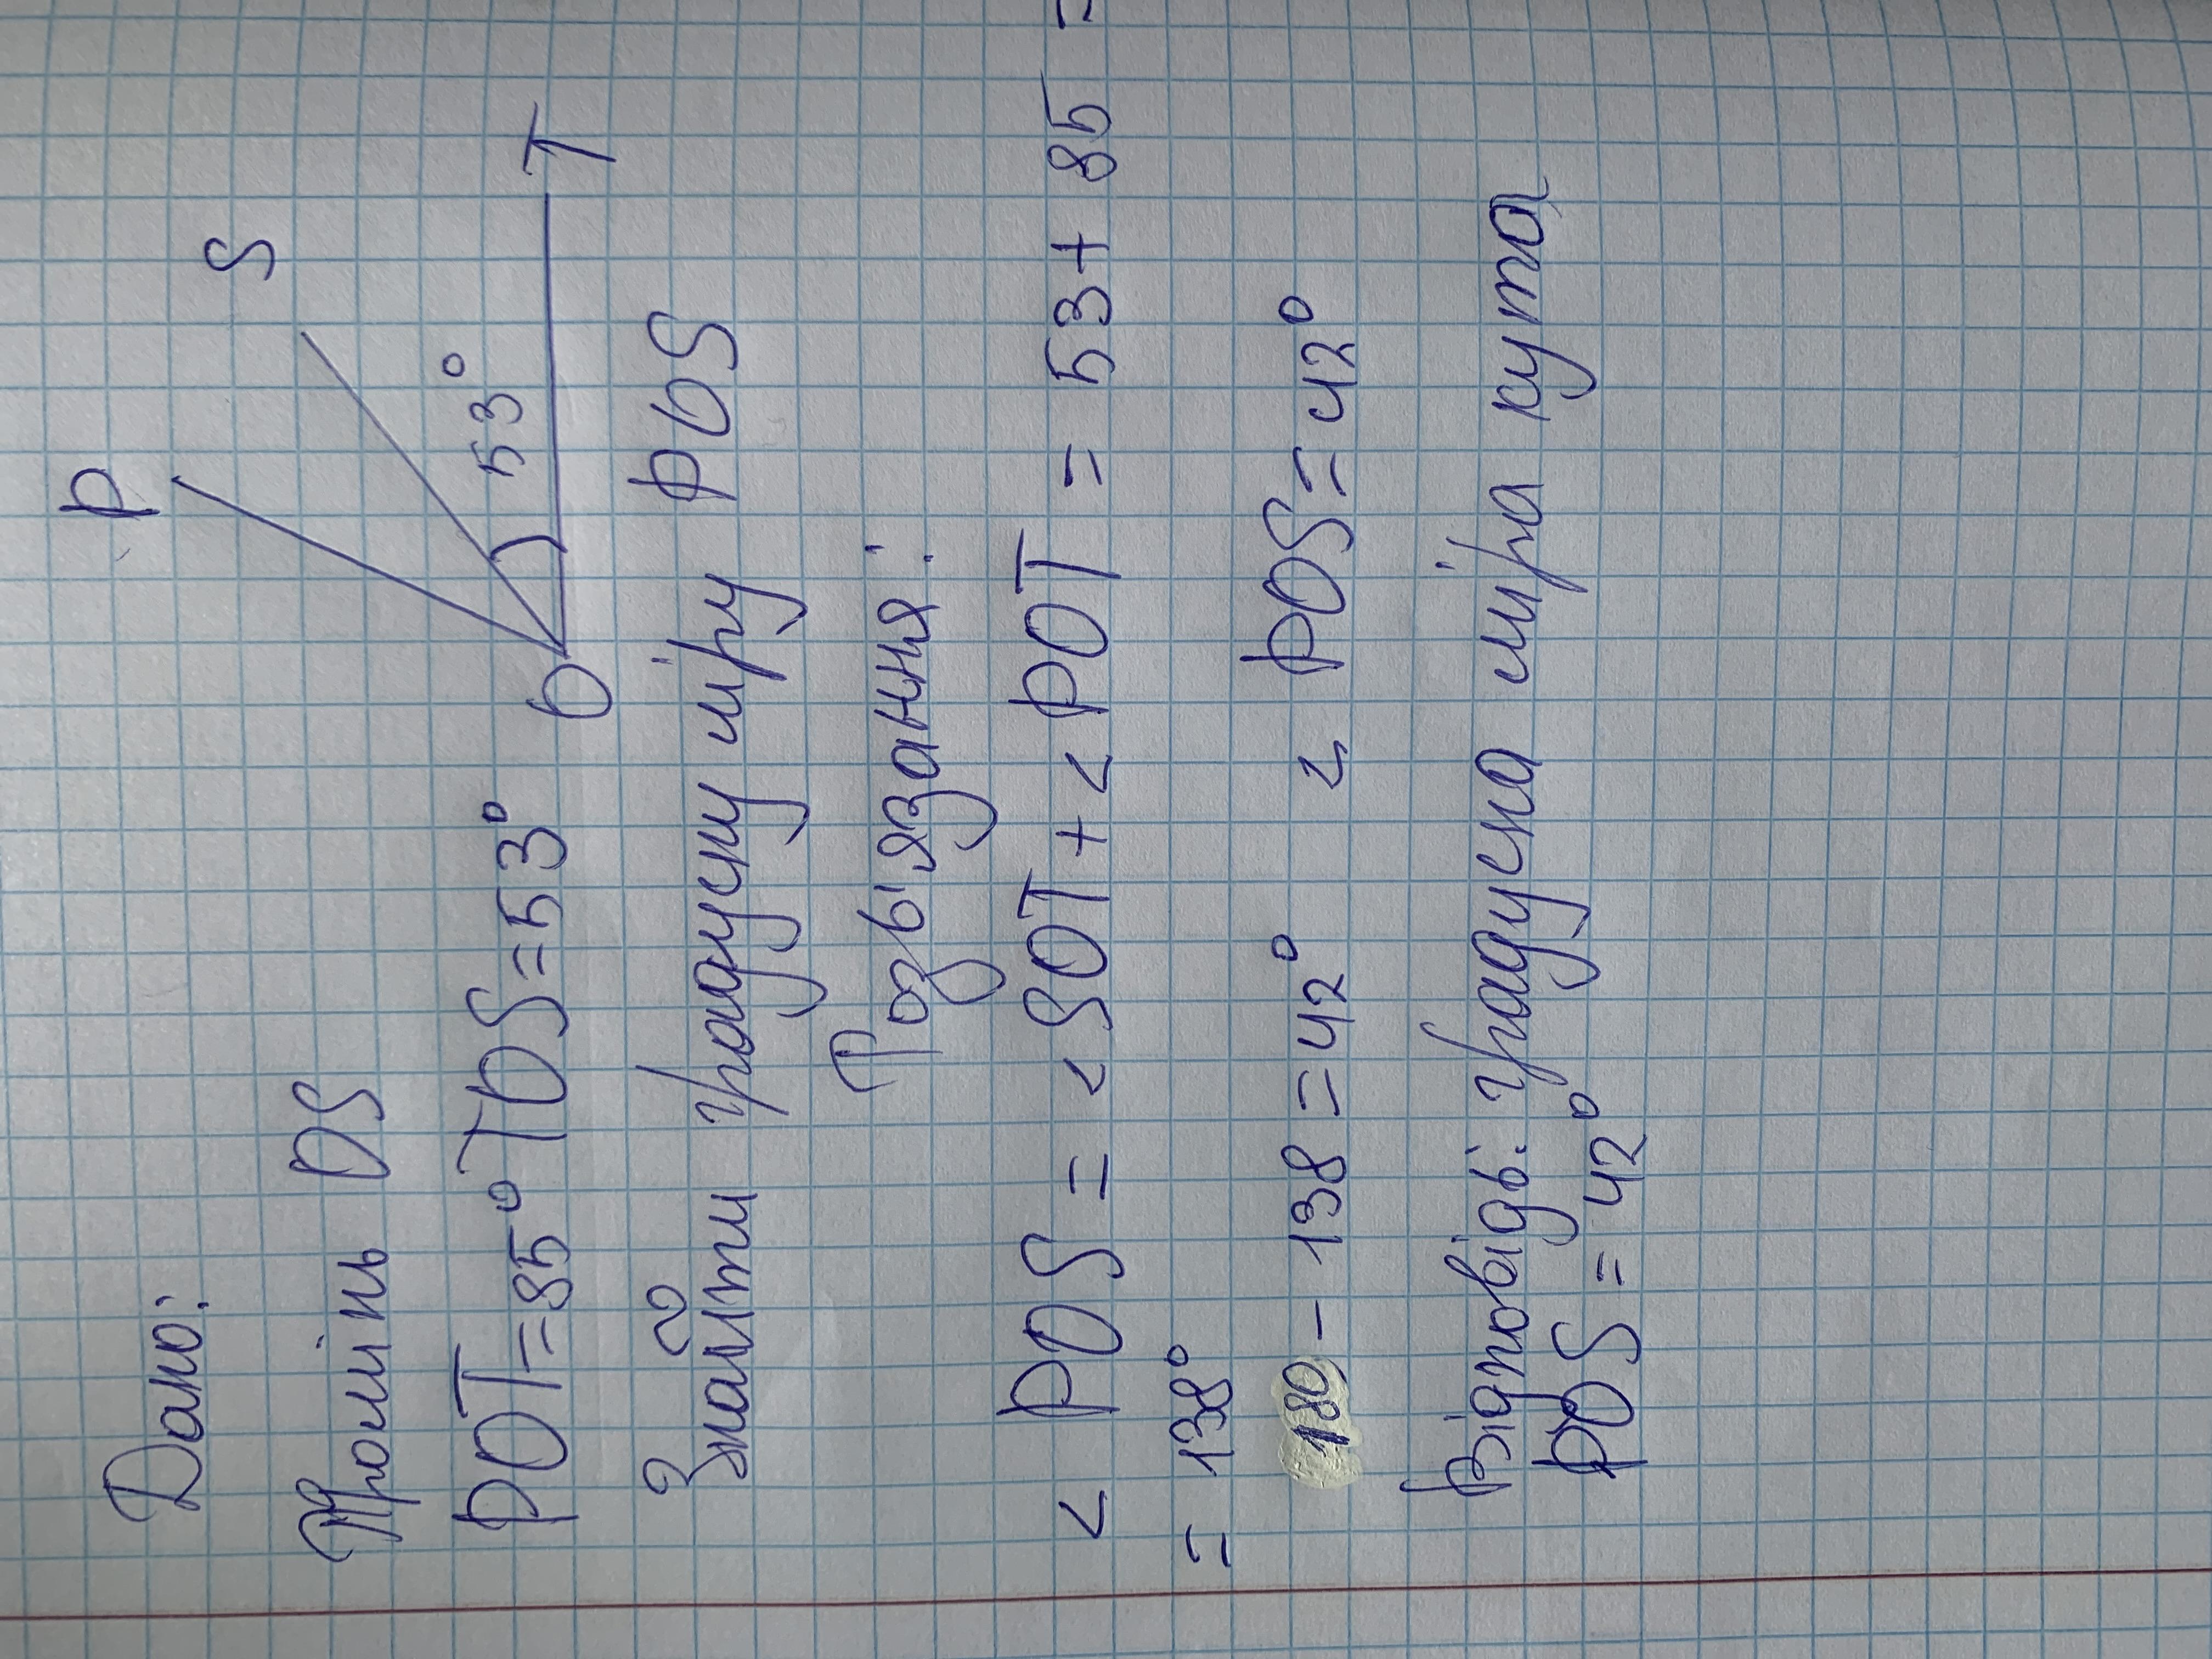 Дано:
P
S
Промінь OS
POT=85° TOS=53°
53°
O
T
Знайти градусну міру POS
Розв'язання:
< POS = < SOT + < POT = 53 + 85 =
= 138°
180 - 138 = 42° < POS = 42°
Відповідь: градусна міра кута
POS = 42°